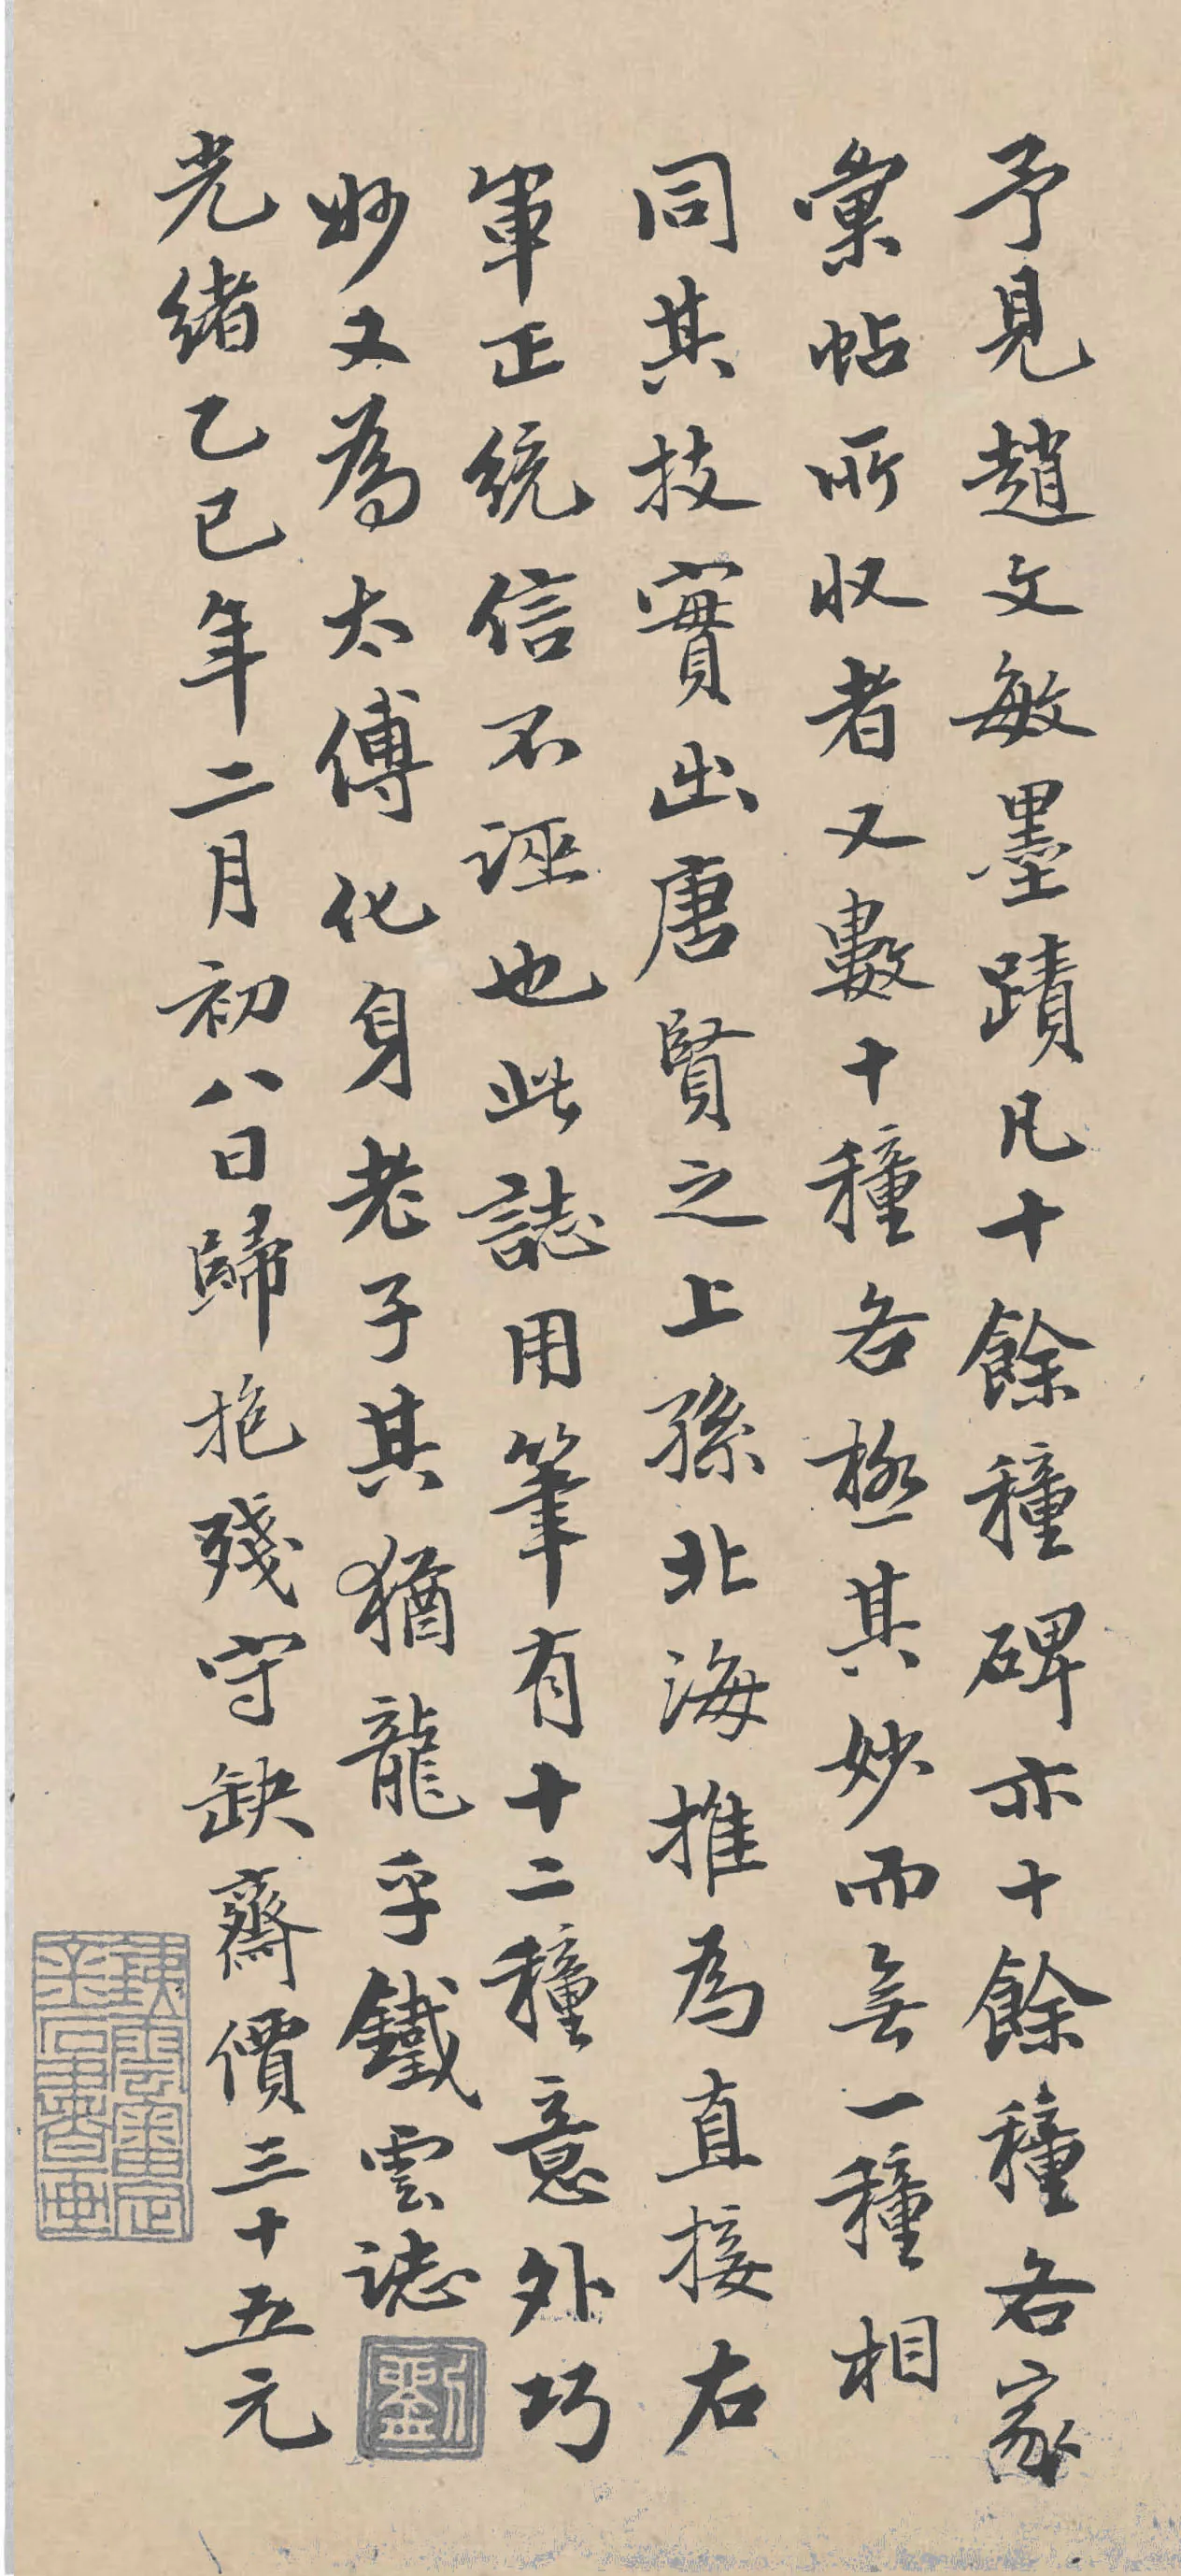 予見趙文敏墨蹟凡十餘種碑亦十餘種各家
彙帖所收者又數十種各極其妙而無一種相
同其技實出唐賢之上孫北海推為直接右
軍正統信不誣也此誌用筆有十二種意外巧
妙又為太傅化身老子其猶龍乎鐵雲誌
劉
光緒乙巳年二月初八日歸抱殘守缺齋價三十五元
鐵雲審定
金石書畫